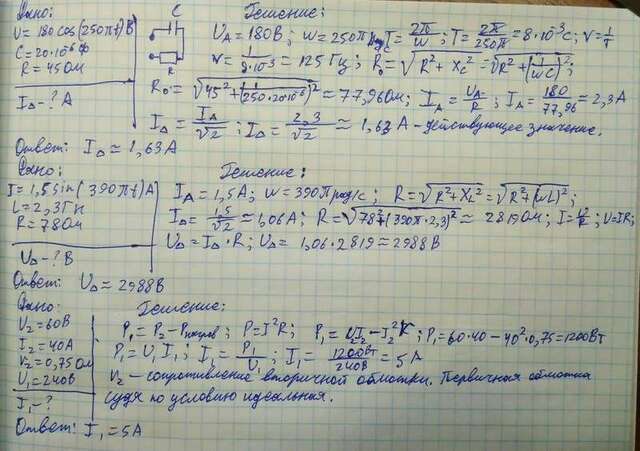 Дано:
U = 180 cos(250πt) В
C = 20·10⁻⁶ Ф
R = 45 Ом
I_Д - ? А
C
R
Решение:
U_A = 180 В; ω = 250π рад/с T = 2π/ω; T = 2π/250π = 8·10⁻³ с; ν = 1/T
ν = 1/8·10⁻³ = 125 Гц; R₀ = √R² + X_C² = √R² + (1/ωC)²;
R₀ = √45² + (1/250·20·10⁻⁶)² ≈ 77,96 Ом; I_A = U_A/R; I_A = 180/77,96 = 2,3 А
I_Д = I_A/√2; I_Д = 2,3/√2 ≈ 1,63 А - действующее значение.
Ответ: I_Д ≈ 1,63 А
Дано:
I = 1,5 sin(390πt) А
L = 2,3 Гн
R = 78 Ом
U_Д - ? В
Решение:
I_A = 1,5 А; ω = 390π рад/с; R = √R² + X_L² = √R² + (ωL)²;
I_Д = 1,5/√2 ≈ 1,06 А; R = √78² + (390π·2,3)² ≈ 2819 Ом; I = U/R; U = IR;
U_Д = I_Д·R; U_Д = 1,06·2819 ≈ 2988 В
Ответ: U_Д ≈ 2988 В
Дано:
U₂ = 60 В
I₂ = 40 А
r₂ = 0,75 Ом
U₁ = 240 В
I₁ - ?
Решение:
P₁ = P₂ - Pнагрев; P = I²R; P₁ = U₂I₂ - I₂²r; P₁ = 60·40 - 40²·0,75 = 1200 Вт
P₁ = U₁I₁; I₁ = P₁/U₁; I₁ = 1200 Вт/240 В = 5 А
r₂ - сопротивление вторичной обмотки. Первичная обмотка
судя по условию идеальная.
Ответ: I₁ = 5 А